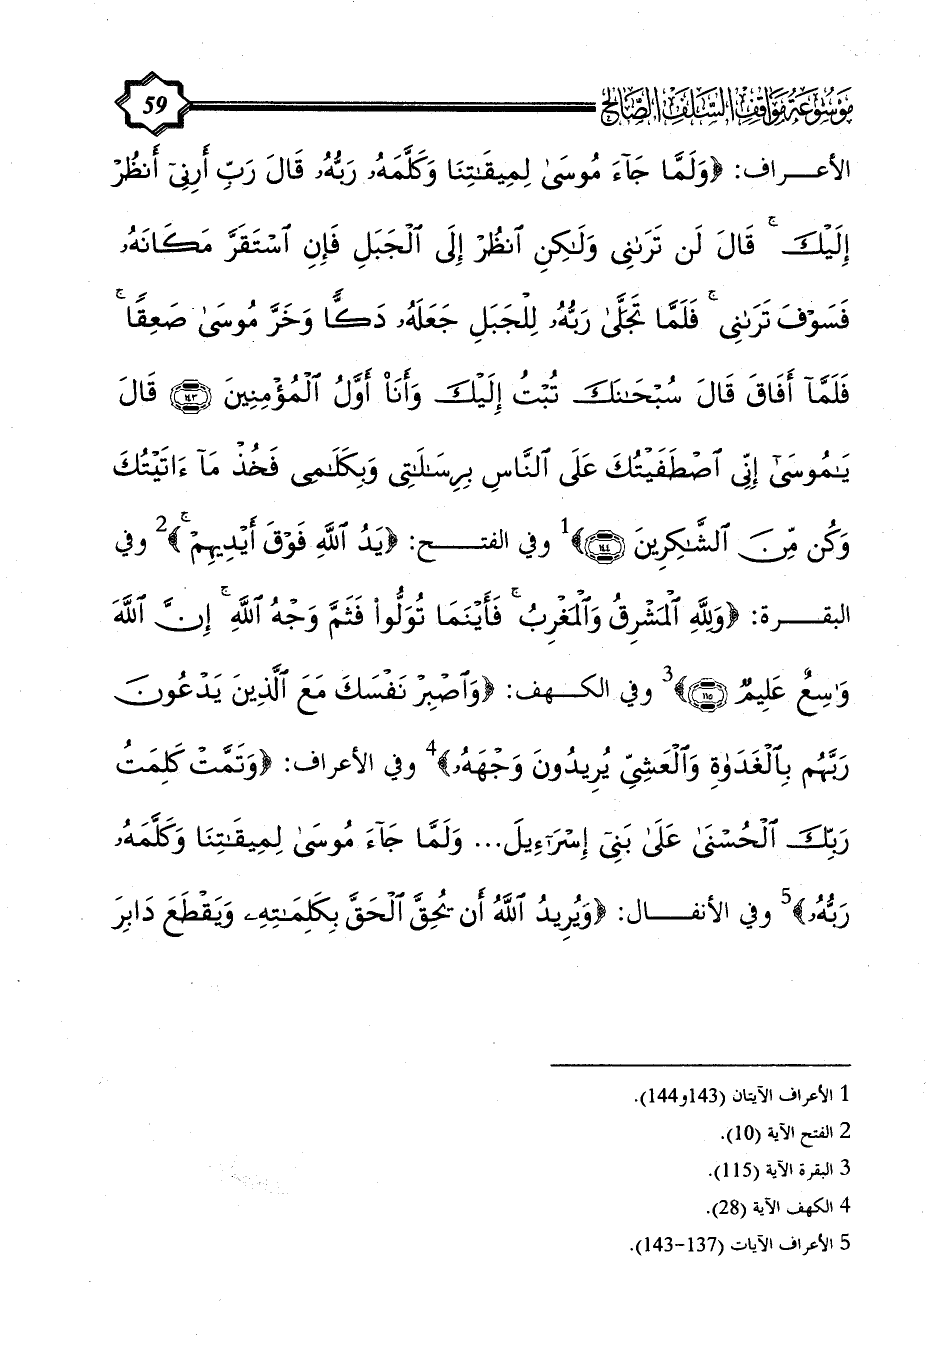 موسوعة مواقف السلف الصالح
59
الأعـــراف: ﴿وَلَمَّا جَآءَ مُوسَىٰ لِمِيقَـٰتِنَا وَكَلَّمَهُۥ رَبُّهُۥ قَالَ رَبِّ أَرِنِىٓ أَنظُرْ
إِلَيْكَ ۚ قَالَ لَن تَرَىٰنِى وَلَـٰكِنِ ٱنظُرْ إِلَى ٱلْجَبَلِ فَإِنِ ٱسْتَقَرَّ مَكَانَهُۥ
فَسَوْفَ تَرَىٰنِى ۚ فَلَمَّا تَجَلَّىٰ رَبُّهُۥ لِلْجَبَلِ جَعَلَهُۥ دَكًّا وَخَرَّ مُوسَىٰ صَعِقًا ۚ
فَلَمَّآ أَفَاقَ قَالَ سُبْحَـٰنَكَ تُبْتُ إِلَيْكَ وَأَنَا۠ أَوَّلُ ٱلْمُؤْمِنِينَ ١٤٣ قَالَ
يَـٰمُوسَىٰٓ إِنِّى ٱصْطَفَيْتُكَ عَلَى ٱلنَّاسِ بِرِسَـٰلَـٰتِى وَبِكَلَـٰمِى فَخُذْ مَآ ءَاتَيْتُكَ
وَكُن مِّنَ ٱلشَّـٰكِرِينَ ١٤٤﴾1 وفي الفتـــح: ﴿يَدُ ٱللَّهِ فَوْقَ أَيْدِيهِمْ ۚ﴾2 وفي
البقـــرة: ﴿وَلِلَّهِ ٱلْمَشْرِقُ وَٱلْمَغْرِبُ ۚ فَأَيْنَمَا تُوَلُّوا۟ فَثَمَّ وَجْهُ ٱللَّهِ ۚ إِنَّ ٱللَّهَ
وَٰسِعٌ عَلِيمٌ ١١٥﴾3 وفي الكـهف: ﴿وَٱصْبِرْ نَفْسَكَ مَعَ ٱلَّذِينَ يَدْعُونَ
رَبَّهُم بِٱلْغَدَوٰةِ وَٱلْعَشِىِّ يُرِيدُونَ وَجْهَهُۥ﴾4 وفي الأعراف: ﴿وَتَمَّتْ كَلِمَتُ
رَبِّكَ ٱلْحُسْنَىٰ عَلَىٰ بَنِىٓ إِسْرَٰٓءِيلَ... وَلَمَّا جَآءَ مُوسَىٰ لِمِيقَـٰتِنَا وَكَلَّمَهُۥ
رَبُّهُۥ﴾5 وفي الأنفـــال: ﴿وَيُرِيدُ ٱللَّهُ أَن يُحِقَّ ٱلْحَقَّ بِكَلِمَـٰتِهِۦ وَيَقْطَعَ دَابِرَ
1 الأعراف الآيتان (143و144).
2 الفتح الآية (10).
3 البقرة الآية (115).
4 الكهف الآية (28).
5 الأعراف الآيات (137-143).